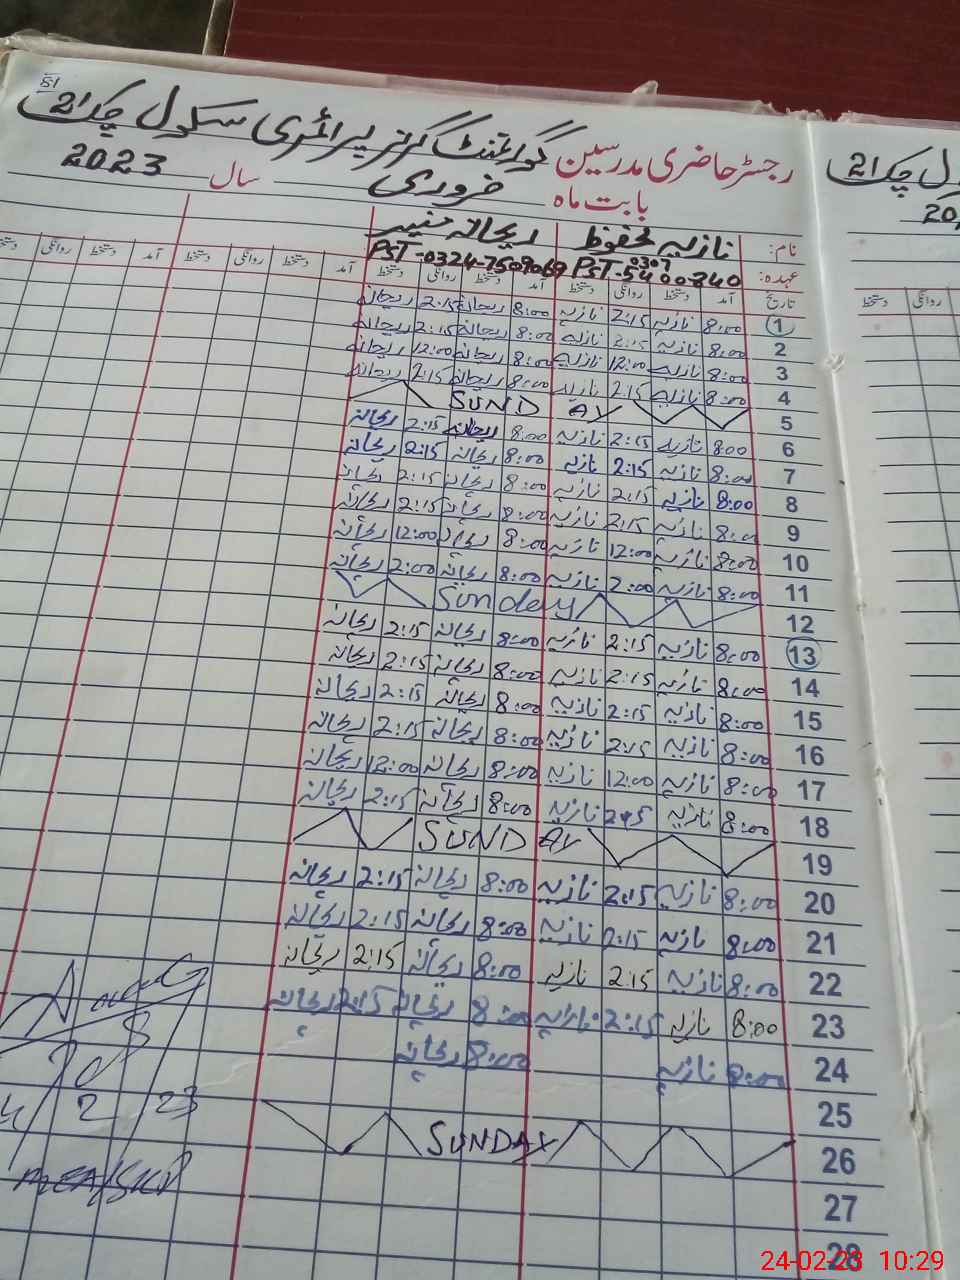 رجسٹر حاضری مدرسین گورنمنٹ گرلز پرائمری سکول چک 21
بابت ماہ فروری سال 2023
نام: نازیہ محفوظ ریحانہ منیر
عہدہ: PST-0307 5400840 PST-0324-7509069
تاریخ آمد دستخط روانگی دستخط آمد دستخط روانگی دستخط آمد دستخط روانگی دستخط
1 8:00 نازیہ 2:15 نازیہ 8:00 ریحانہ 2:15 ریحانہ
2 8:00 نازیہ 2:15 نازیہ 8:00 ریحانہ 2:15 ریحانہ
3 8:00 نازیہ 12:00 نازیہ 8:00 ریحانہ 12:00 ریحانہ
4 8:00 نازیہ 2:15 نازیہ 8:00 ریحانہ 2:15 ریحانہ
5 SUNDAY
6 8:00 نازیہ 2:15 نازیہ 8:00 ریحانہ 2:15 ریحانہ
7 8:00 نازیہ 2:15 نازیہ 8:00 ریحانہ 2:15 ریحانہ
8 8:00 نازیہ 2:15 نازیہ 8:00 ریحانہ 2:15 ریحانہ
9 8:00 نازیہ 2:15 نازیہ 8:00 ریحانہ 2:15 ریحانہ
10 8:00 نازیہ 12:00 نازیہ 8:00 ریحانہ 12:00 ریحانہ
11 8:00 نازیہ 2:00 نازیہ 8:00 ریحانہ 2:00 ریحانہ
12 Sunday
13 8:00 نازیہ 2:15 نازیہ 8:00 ریحانہ 2:15 ریحانہ
14 8:00 نازیہ 2:15 نازیہ 8:00 ریحانہ 2:15 ریحانہ
15 8:00 نازیہ 2:15 نازیہ 8:00 ریحانہ 2:15 ریحانہ
16 8:00 نازیہ 2:15 نازیہ 8:00 ریحانہ 2:15 ریحانہ
17 8:00 نازیہ 12:00 نازیہ 8:00 ریحانہ 12:00 ریحانہ
18 8:00 نازیہ 2:15 نازیہ 8:00 ریحانہ 2:15 ریحانہ
19 SUNDAY
20 8:00 نازیہ 2:15 نازیہ 8:00 ریحانہ 2:15 ریحانہ
21 8:00 نازیہ 2:15 نازیہ 8:00 ریحانہ 2:15 ریحانہ
22 8:00 نازیہ 2:15 نازیہ 8:00 ریحانہ 2:15 ریحانہ
23 8:00 نازیہ 2:15 نازیہ 8:00 ریحانہ 2:15 ریحانہ
24 8:00 نازیہ 8:00 ریحانہ
25
26 SUNDAY
27
28
2 / 23
چک 21
دستخط روانگی
24-02-23 10:29